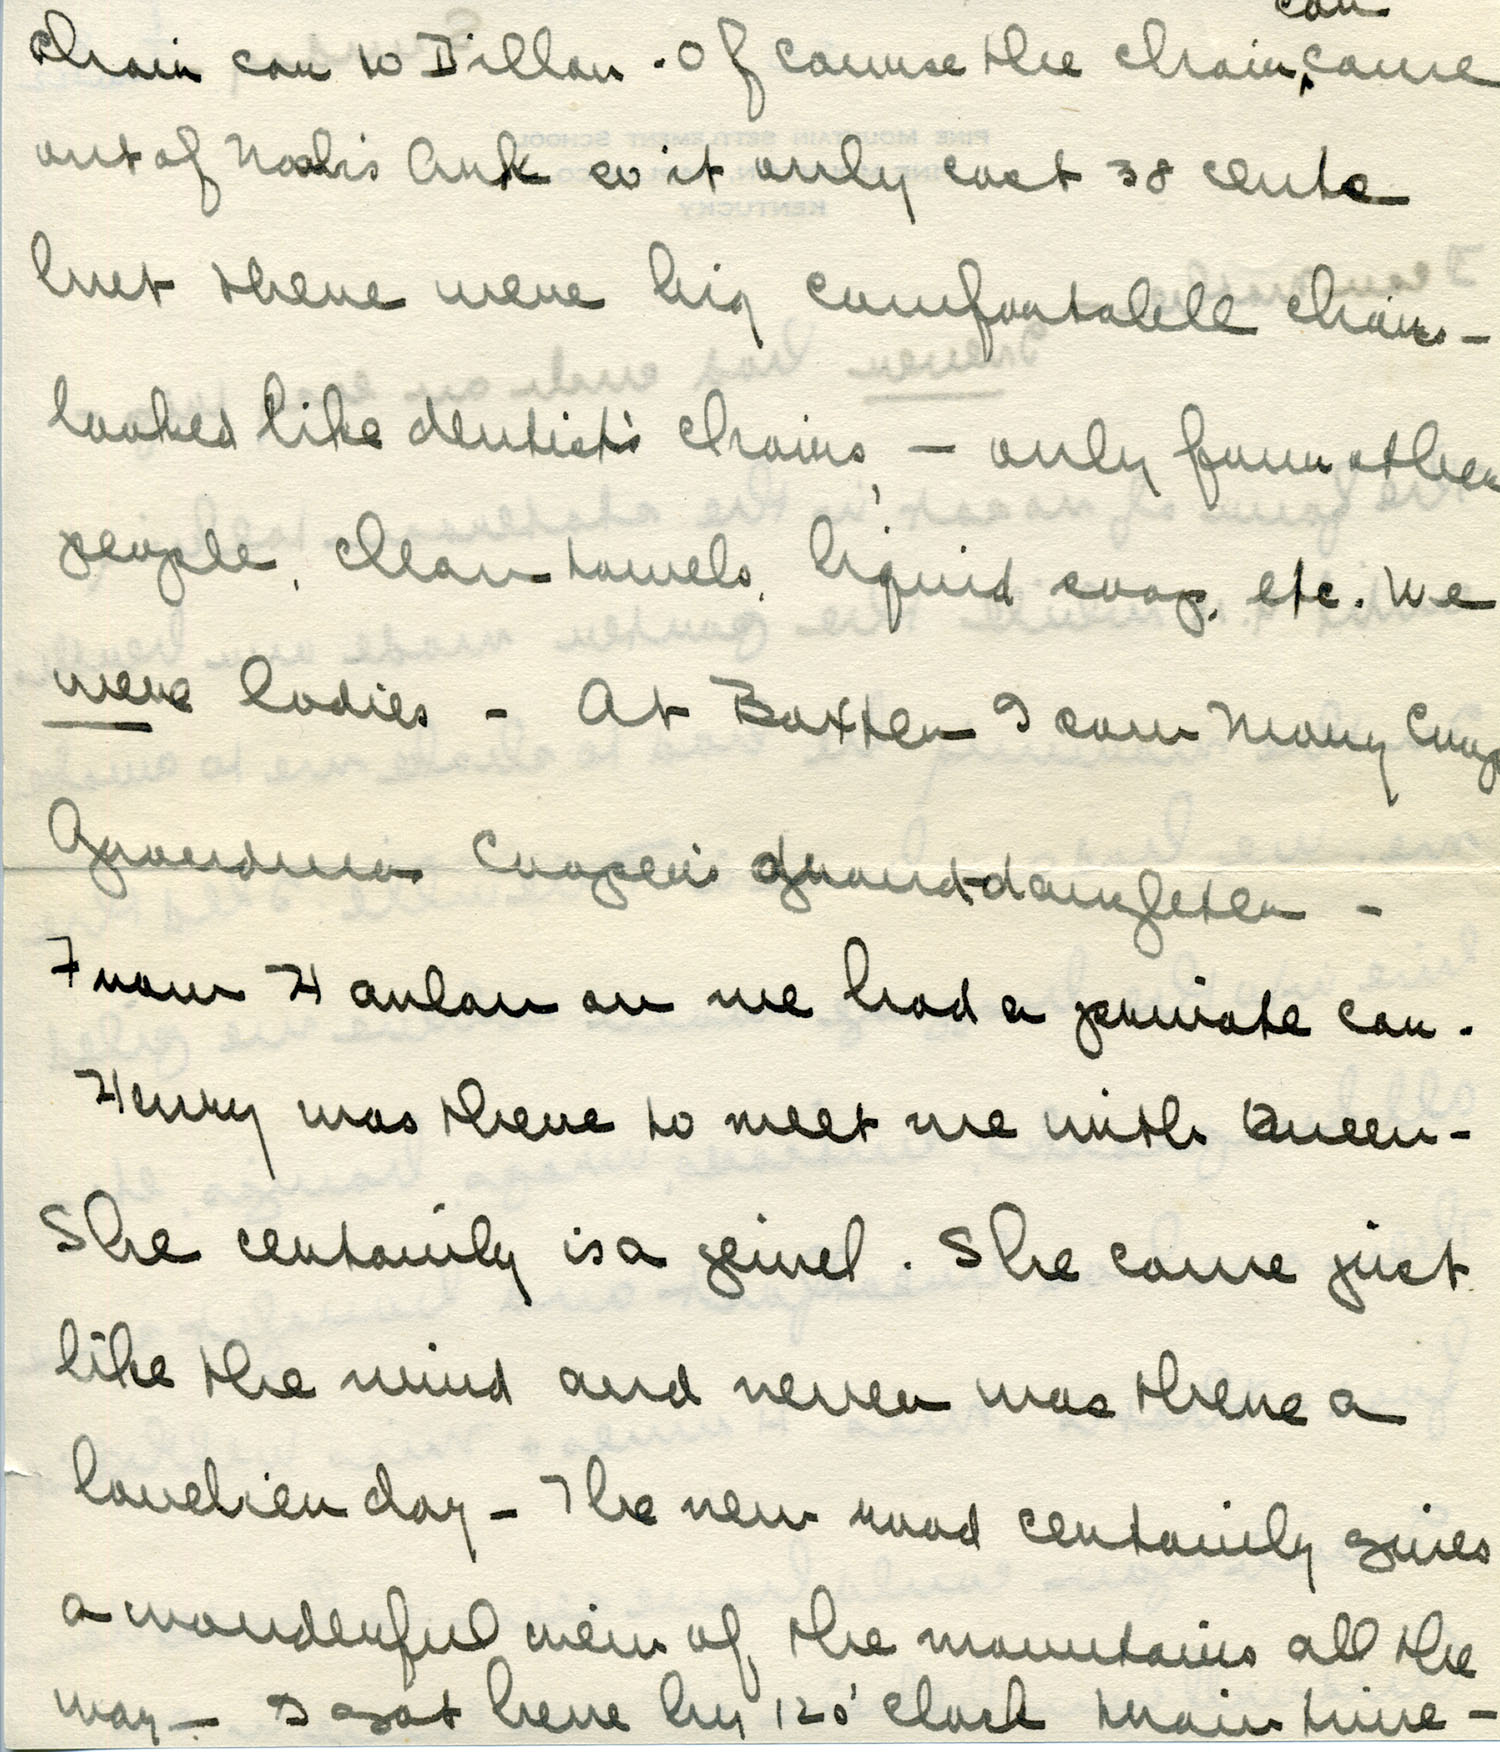 car
chair car to Dillon. Of course the chair, came
out of Noah's Ark so it only cost 38 cents
but there were big comfortable chairs -
looked like dentist's chairs, - only four other
people, clean towels, liquid soap, etc. We
were ladies - At Baxter I saw Mary Coop
Grandma Cooper's granddaugheter -
From Harlan on we had a private car.
Henry was there to meet me with Queen -
She certainly is a jewel. She came just
like the wind and never was there a
lovelier day - The new road certainly gives
a wonderful view of the mountains all the
way - I got here by 12 o'clock train time -
PINE MOUNTAIN SETTLEMENT SCHOOL
KENTUCKY